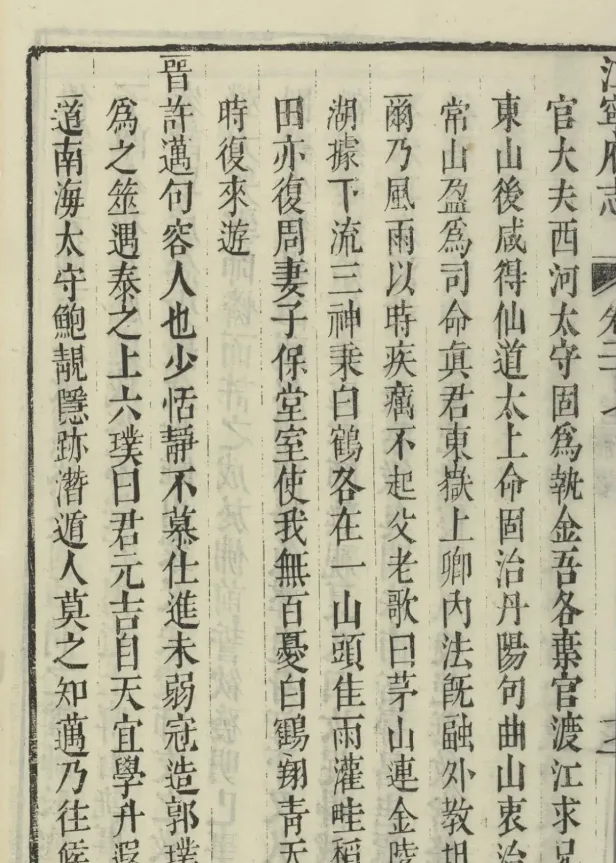 江寧府志
官大夫西河太守固爲執金吾各棄官渡江求兄
東山後咸得仙道太上命固治丹陽句曲山衷治
常山盈爲司命眞君東嶽上卿內法旣融外教坦
爾乃風雨以時疾癘不起父老歌曰茅山連金陵
湖據下流三神乘白鶴各在一山頭佳雨灌畦稻
田亦復周妻子保堂室使我無百憂白鶴翔青天
時復來遊
晉許邁句容人也少恬靜不慕仕進未弱冠造郭璞
爲之筮遇泰之上六璞曰君元吉自天宜學升遐
道南海太守鮑靚隱跡潛遁人莫之知邁乃往候